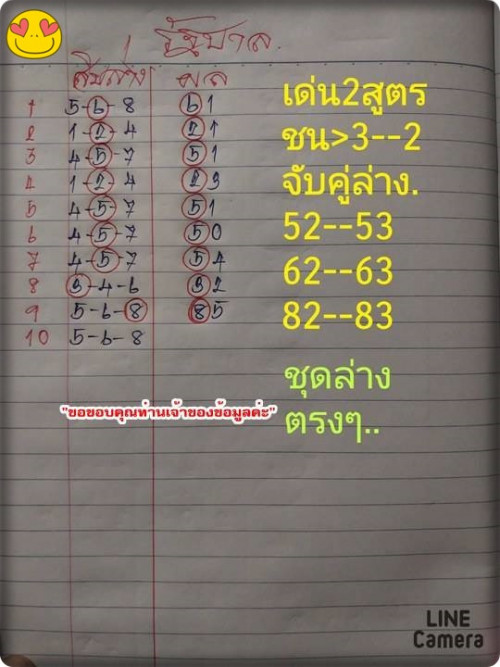 รัฐบาล.
สิบล่าง ผล
1 5-6-8 61
2 1-2-4 21
3 4-5-7 51
4 1-2-4 23
5 4-5-7 51
6 4-5-7 50
7 4-5-7 54
8 3-4-6 32
9 5-6-8 85
10 5-6-8
เด่น2สูตร
ชน>3--2
จับคู่ล่าง.
52--53
62--63
82--83
ชุดล่าง
ตรงๆ..
"ขอขอบคุณท่านเจ้าของข้อมูลค่ะ"
LINE
Camera